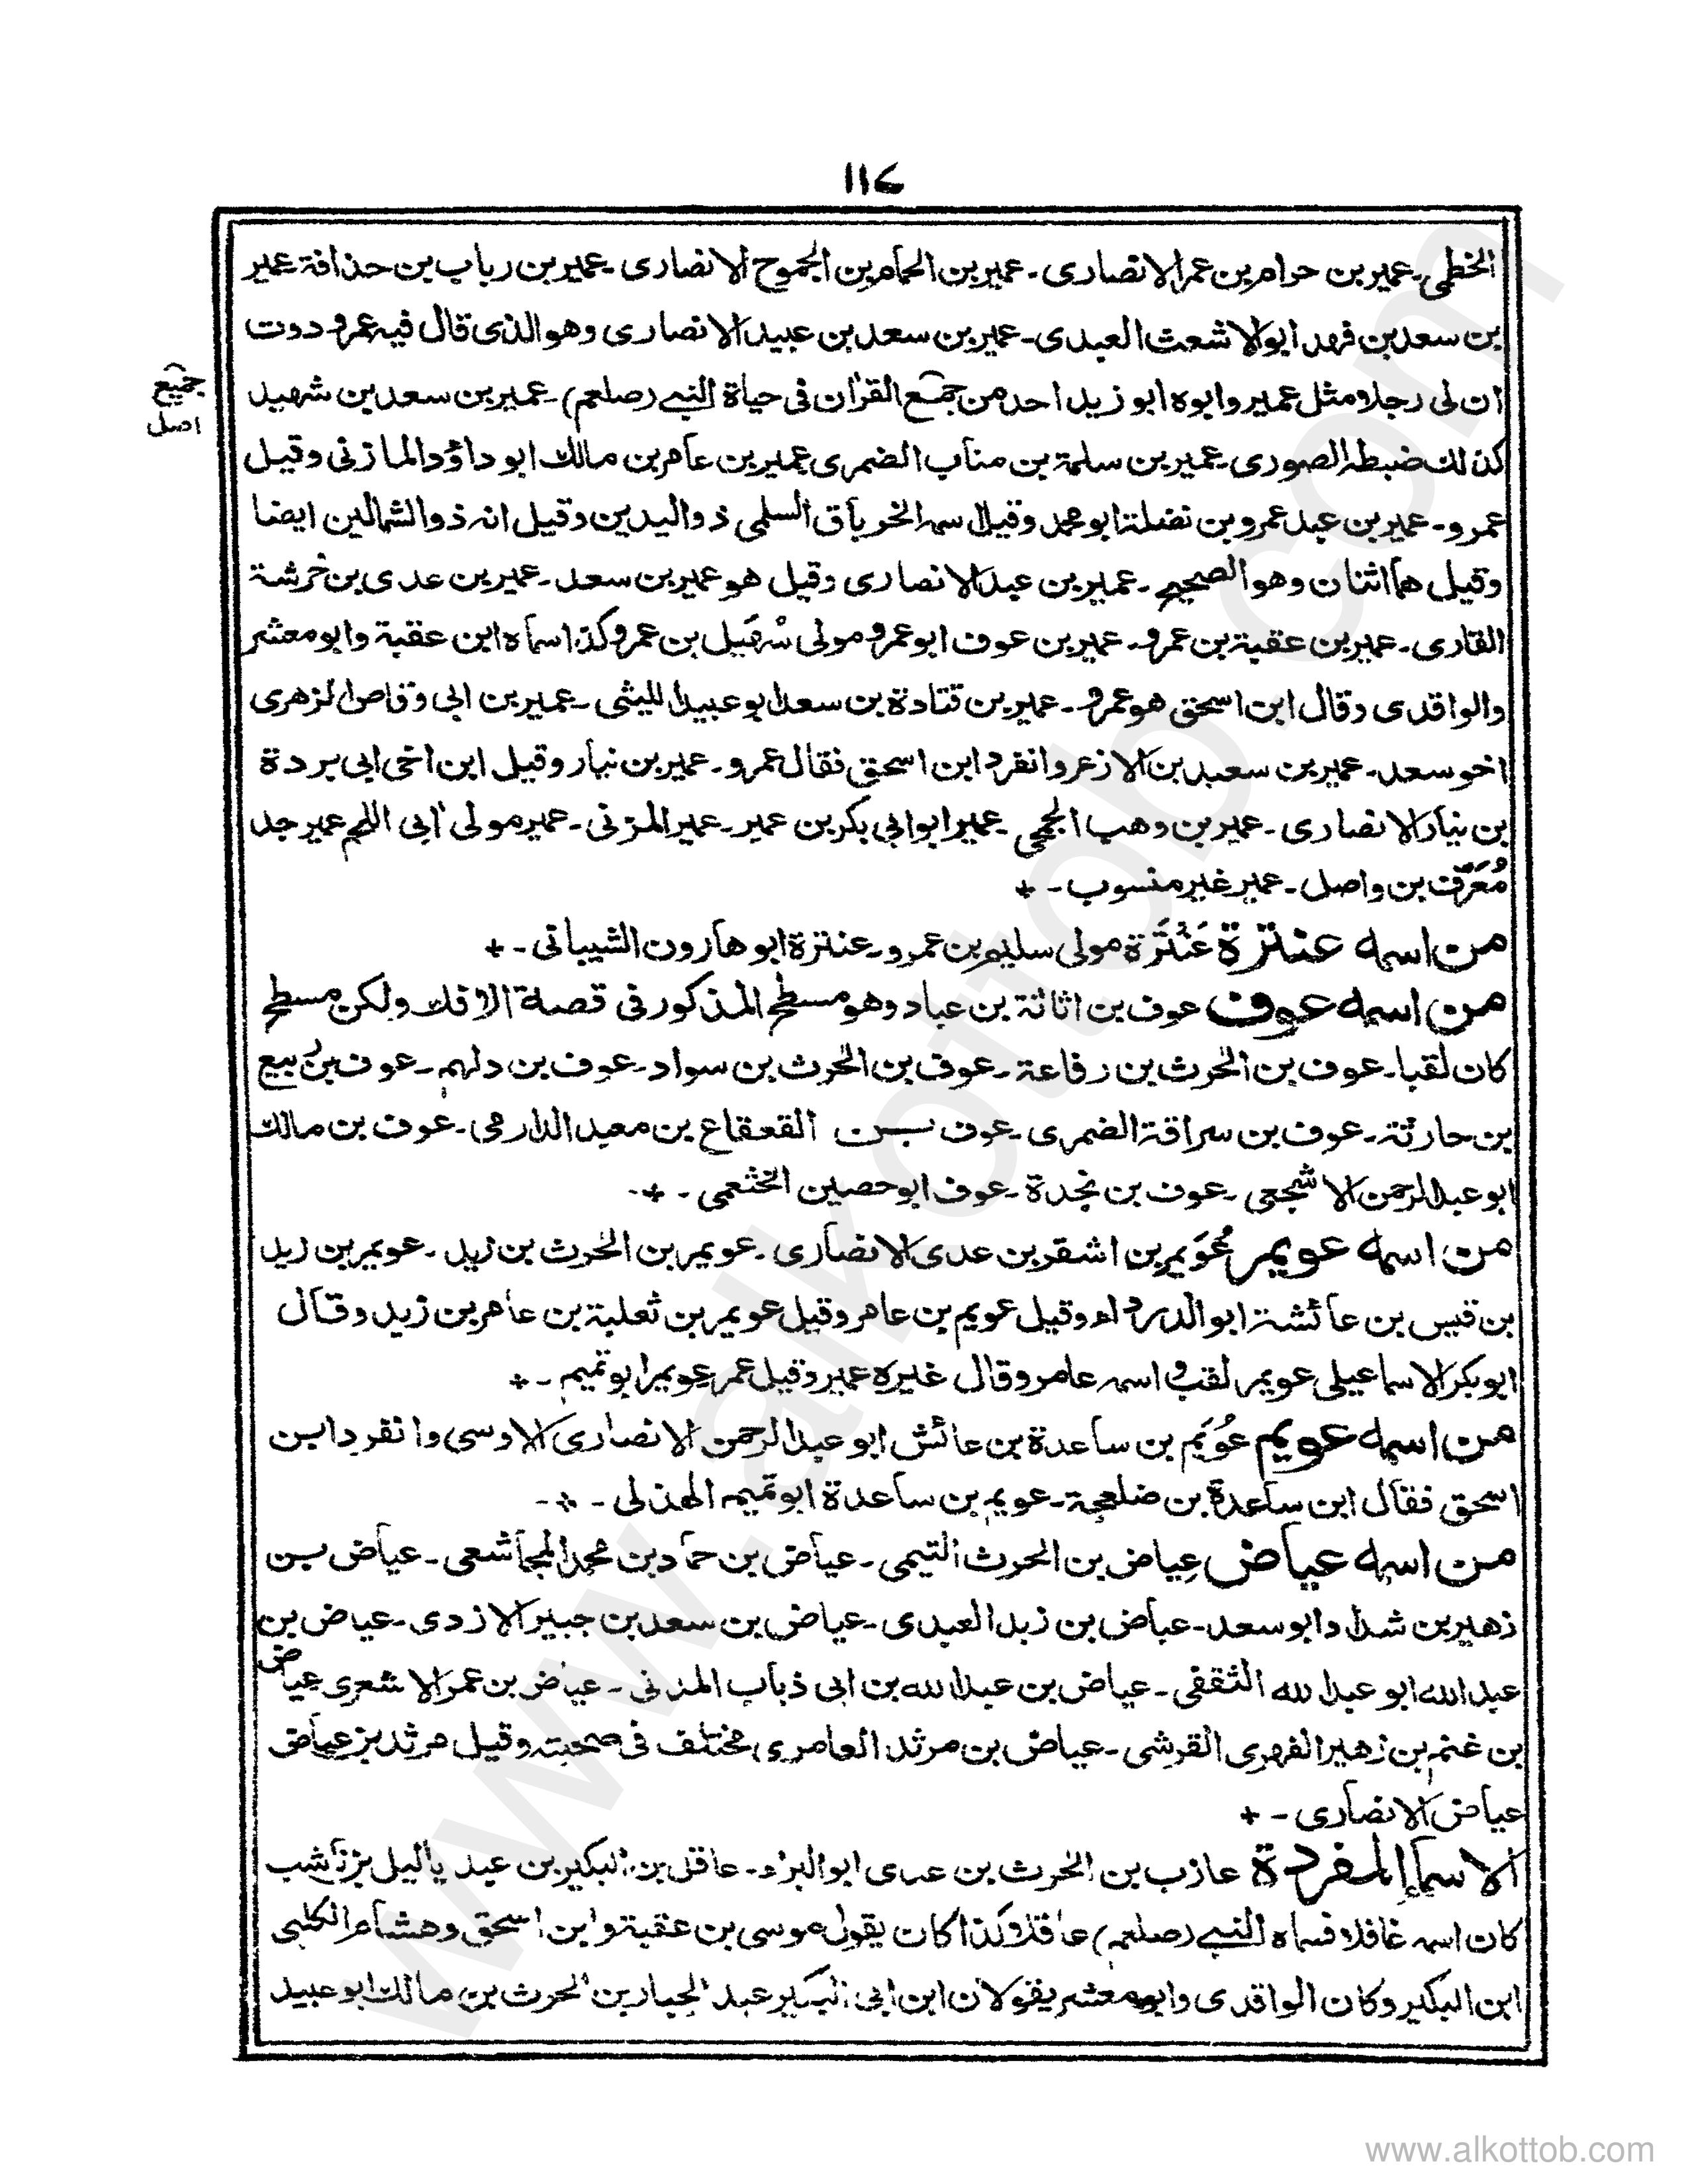 ١١٧
الخطمى۔عمير بن حرام بن عمر الانصارى۔عمير بن الحمام بن الجموح الانصارى۔عمير بن رباب بن حذافة عمير
بن سعد بن فهد ابوالاشعث العبدى۔عمير بن سعد بن عبيد الانصارى وهو الذى قال فيه عمرو ددت
ان لى رجلا مثل عمير وابوه ابو زيد احد من جمع القرآن فى حياة النبي (صلعم)۔عمير بن سعد بن شهيد
جميع
اصل
كذلك ضبطه الصورى۔عمير بن سلمة بن مناب الضمرى عمير بن عامر بن مالك ابو داؤد المازنى وقيل
عمرو۔عمير بن عبد عمرو بن نضلة ابو محمد وقيل اسمه الخرباق السلمى ذو اليدين وقيل انه ذو الشمالين ايضا
وقيل هما اثنان وهو الصحيح۔عمير بن عبد الانصارى وقيل هو عمير بن سعد۔عمير بن عدى بن خرشة
القارى۔عمير بن عقبة بن عمرو۔عمير بن عوف ابو عمرو مولى سُهَيل بن عمرو كذا سماه ابن عقبة وابو معشر
والواقدى وقال ابن اسحق هو عمرو۔عمير بن قتادة بن سعد ابو عبيد الليثى۔عمير بن ابى وقاص الزهرى
اخو سعد۔عمير بن سعيد بن الازعر وانفرد ابن اسحق فقال عمرو۔عمير بن نيار وقيل ابن اخى ابى بردة
بن نيار الانصارى۔عمير بن وهب الجمحى۔عمير ابو ابى بكر بن عمير۔عمير المزنى۔عمير مولى آبى اللحم عمير جد
مُعَرِّف بن واصل۔عمير غير منسوب۔+
من اسمه عنترة عَنْتَرة مولى سليم بن عمرو۔عنترة ابو هارون الشيبانى۔+
من اسمه عوف عوف بن اثاثة بن عباد وهو مسطح المذكور فى قصة الافك ولكن مسطح
كان لقبا۔عوف بن الحرث بن رفاعة۔عوف بن الحرث بن سواد۔عوف بن دلهم۔عوف بن ربيع
بن حارثة۔عوف بن سراقة الضمرى۔عوف بن القعقاع بن معبد الدارمى۔عوف بن مالك
ابو عبد الرحمن الاشجعى۔عوف بن نجدة۔عوف ابو حصين الخثعمى۔+۔
من اسمه عويمر عُوَيمر بن اشقر بن عدى الانصارى۔عويمر بن الحرث بن زيد۔عويمر بن زيد
بن قيس بن عائشة ابو الدرداء وقيل عويمر بن عامر وقيل عويمر بن ثعلبة بن عامر بن زيد وقال
ابو بكر الاسماعيلى عويمر لقب واسمه عامر وقال غيره عمير وقيل عمر عويمر ابو تميم۔+
من اسمه عويم عُوَيم بن ساعدة بن عائش ابو عبد الرحمن الانصارى الاوسى وانفرد ابن
اسحق فقال ابن ساعدة بن ضلعجة۔عويم بن ساعدة ابو تميم الهذلى۔+۔
من اسمه عياض عِياض بن الحرث التيمى۔عياض بن حماد بن محمد المجاشعى۔عياض بن
زهير بن شداد ابو سعد۔عياض بن زيد العبدى۔عياض بن سعد بن جبير الازدى۔عياض بن
عبد الله ابو عبد الله الثقفى۔عياض بن عبد الله بن ابى ذباب المدنى۔عياض بن عمر الاشعرى عياض
بن غنم بن زهير الفهرى القرشى۔عياض بن مرثد العامرى مختلف فى صحبته وقيل مرثد بن عياض
عياض الانصارى۔+
الاسماء المفردة عازب بن الحرث بن عدى ابو البراء۔عاقل بن البكير بن عبد ياليل بن ناشب
كان اسمه غافلا فسماه النبي (صلعم) عاقلا وكذا كان يقول موسى بن عقبة وابن اسحق وهشام الكلبى
ابن البكير وكان الواقدى وابو معشر يقولان ابن ابى البكير عبد الجبار بن الحرث بن مالك ابو عبيد
www.alkottob.com
www.alkottob.com